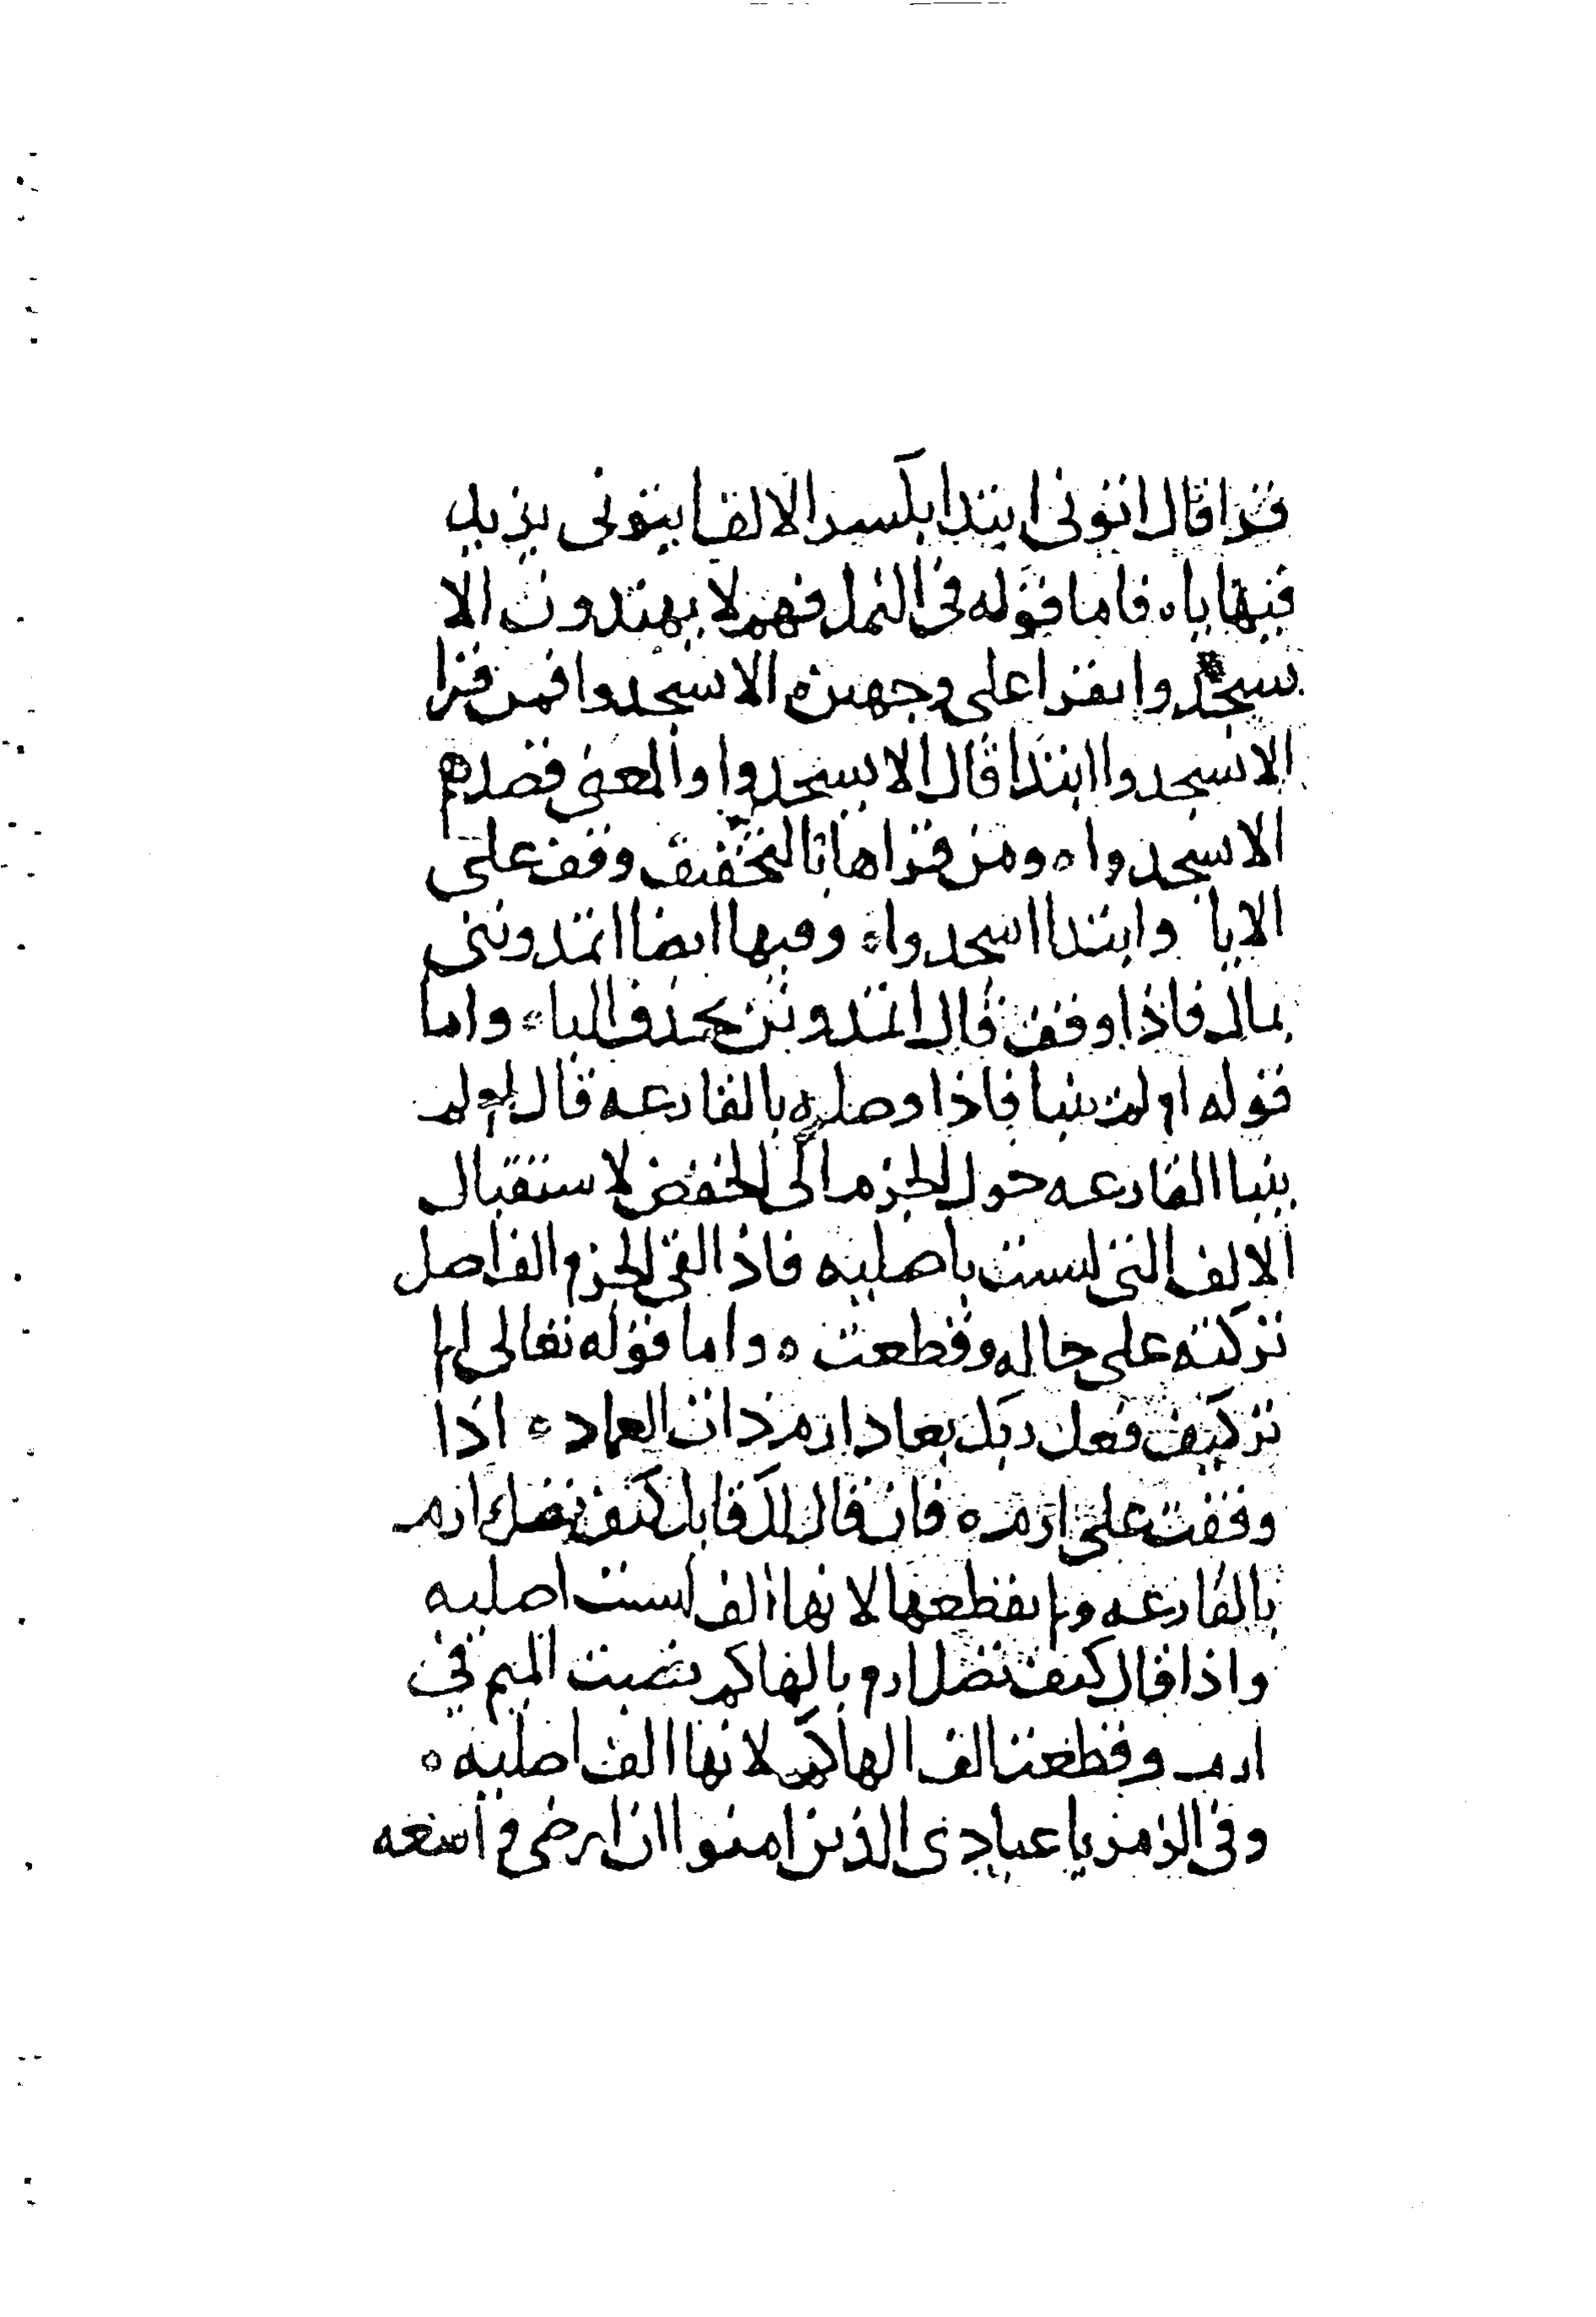 قرا قال اتوني ابتدا بكسر الالف ايتوني يزيد
فيها ياه فاما قوله في النمل فهم لا يهتدون الا
يسجدوا يقرا على وجهين الا يسجدوا فمن قرا
الا يسجدوا ابتدا قال الا يسجدوا والمعنى فصدهم
الا يسجدوا ه ومن قراها بالتخفيف وقف على
الا يا وابتدا اسجدوا ه وفيها ايضا اتمدونني
بمال فاذا وقف قال اتمدونن بحذف اليا ه واما
قوله او لم ينبا فاذا وصله بالقارعه قال او لم
ينبا القارعه حول الجزم الى الخفض لاستقبال
الالف التي ليست باصليه فاذا لقي الجزم الف اصل
تركته على حاله وقطعت ه واما قوله تعالى الم
تر كيف فعل ربك بعاد ارم ذات العماد ه اذا
وقفت على ارم ه فان قال لك قايل كيف تصل ارم
بالقارعه ولم تقطعها لانها الف ليست اصليه
واذا قال كيف تصل ارم بالهاكم نصبت الميم في
ارم وقطعت الف الهاكم لانها الف اصليه ه
وفي الزمر يا عبادي الذين امنوا ان ارضي واسعه